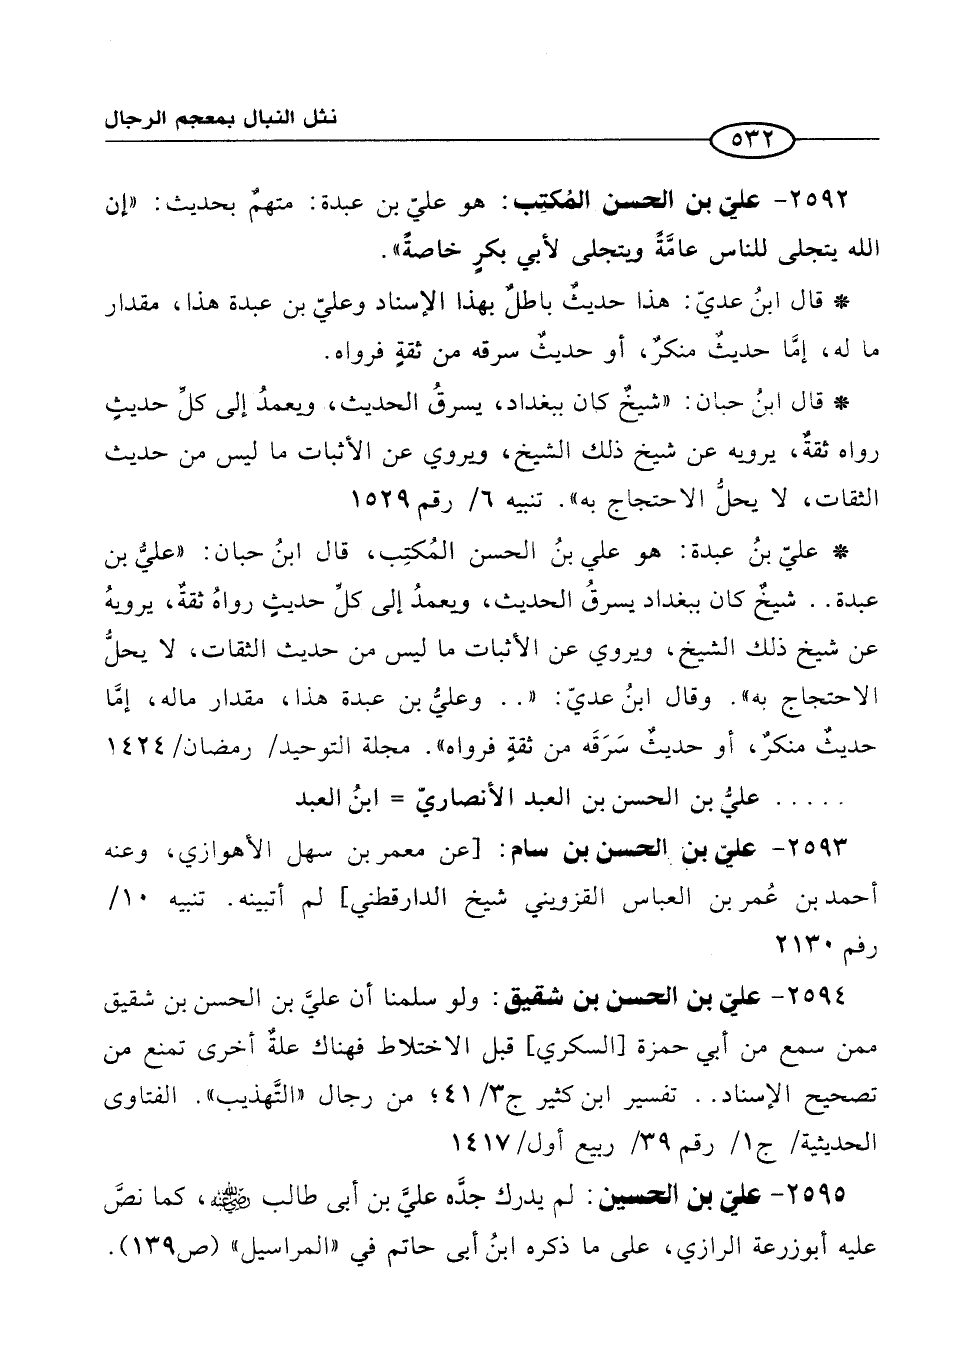 نثل النبال بمعجم الرجال
٥٣٢
٢٥٩٢- عليّ بن الحسن المُكتِب: هو عليّ بن عبدة: متهمٌ بحديث: «إن
الله يتجلى للناس عامَّةً ويتجلى لأبي بكرٍ خاصةً».
* قال ابنُ عديّ: هذا حديثٌ باطلٌ بهذا الإسناد وعليّ بن عبدة هذا، مقدار
ما له، إمَّا حديثٌ منكرٌ، أو حديثٌ سرقه من ثقةٍ فرواه.
* قال ابنُ حبان: «شيخٌ كان ببغداد، يسرقُ الحديث، ويعمدُ إلى كلِّ حديثٍ
رواه ثقةٌ، يرويه عن شيخ ذلك الشيخ، ويروي عن الأثبات ما ليس من حديث
الثقات، لا يحلُّ الاحتجاج به». تنبيه ٦/ رقم ١٥٢٩
* عليّ بنُ عبدة: هو علي بنُ الحسن المُكتِب، قال ابنُ حبان: «عليُّ بن
عبدة.. شيخٌ كان ببغداد يسرقُ الحديث، ويعمدُ إلى كلِّ حديثٍ رواهُ ثقةٌ، يرويهُ
عن شيخ ذلك الشيخ، ويروي عن الأثبات ما ليس من حديث الثقات، لا يحلُّ
الاحتجاج به». وقال ابنُ عديّ: «.. وعليُّ بن عبدة هذا، مقدار ماله، إمَّا
حديثٌ منكرٌ، أو حديثٌ سَرَقَه من ثقةٍ فرواه». مجلة التوحيد/ رمضان/ ١٤٢٤
..... عليُّ بن الحسن بن العبد الأنصاريّ = ابنُ العبد
٢٥٩٣- عليّ بن الحسن بن سام: [عن معمر بن سهل الأهوازي، وعنه
أحمد بن عُمر بن العباس القزويني شيخ الدارقطني] لم أتبينه. تنبيه ١٠/
رقم ٢١٣٠
٢٥٩٤- عليّ بن الحسن بن شقيق: ولو سلمنا أن عليَّ بن الحسن بن شقيق
ممن سمع من أبي حمزة [السكري] قبل الاختلاط فهناك علةٌ أخرى تمنع من
تصحيح الإسناد.. تفسير ابن كثير ج٣/ ٤١؛ من رجال «التَّهذيب». الفتاوى
الحديثية/ ج١/ رقم ٣٩/ ربيع أول/ ١٤١٧
٢٥٩٥- عليّ بن الحسين: لم يدرك جدَّه عليَّ بن أبى طالب رضي الله عنه، كما نصَّ
عليه أبوزرعة الرازي، على ما ذكره ابنُ أبى حاتم في «المراسيل» (ص١٣٩).